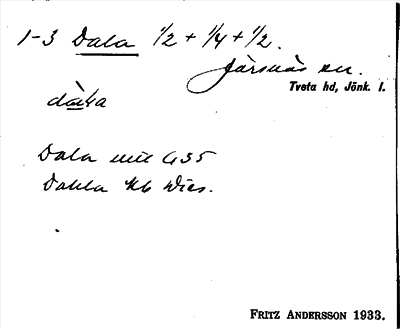 1-3 Dala 1/2 + 1/4 + 1/2.
Järsnäs sn.
Tveta hd, Jönk. l.
dala
Dala
Dahla Kb
FRITZ ANDERSSON 1933.